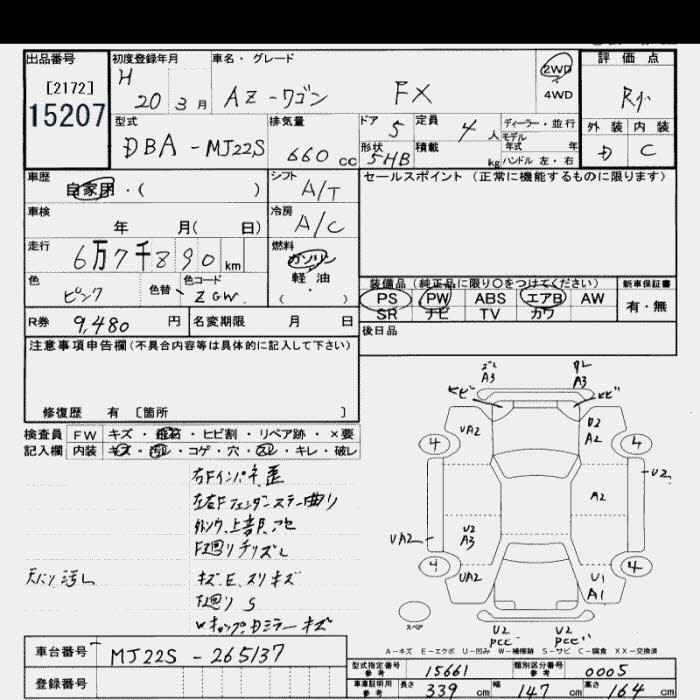 出品番号
[2172]
15207
初度登録年月
H 20 3月
車名・グレード
AZ-ワゴン FX
2WD
4WD
評価点
R小
外装 内装
D C
型式
DBA-MJ22S
排気量
660 cc
ドア 5
形状 5HB
定員 4人
積載 kg
ディーラー・並行
モデル
年式 年
ハンドル 左・右
車歴
自家用・( )
シフト
A/T
セールスポイント (正常に機能するものに限ります)
車検
年 月( 日)
冷房
A/C
走行
6万7千890 km
燃料
ガソリン
軽油
( )
色
ピンク
色替
色コード
ZGW
装備品 (純正品に限り○をつけてください)
PS PW ABS エアB AW
SR ナビ TV カワ
新車保証書
有・無
R券 9,480 円
名変期限 月 日
後日品
注意事項申告欄(不具合内容等は具体的に記入して下さい)
修復歴 有 [箇所 ]
検査員 FW キズ・飛石・ヒビ割・リペア跡・×要
記入欄 内装 キズ・汚レ・コゲ・穴・スレ・キレ・破レ
右Fインパネ歪
左右Fフェンダーステー曲り
F廻りチリズレ
天バリ汚レ
キズ、E、スリキズ
F廻り S
A3
A3
ヒビ
ヒビ
UA2
U2
A2
4
4
A2
U2
UA2
U2
A3
4
4
UA2
U1
A1
スペア
U2
U2
A-キズ E-エクボ U-凹み W-補修跡 S-サビ C-腐食 XX-交換済
車台番号
MJ22S-265137
登録番号
型式指定番号
参考
15661
類別区分番号
参考
0005
車庫証明用
参考
長さ 339 cm
幅 147 cm
高さ 164 cm